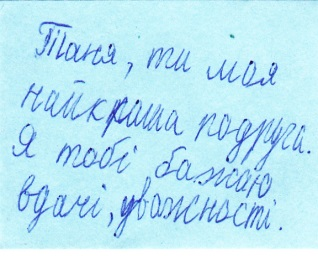 Таня, ти моя
найкраша подруга.
Я тобі бажаю
вдачі, уважності.